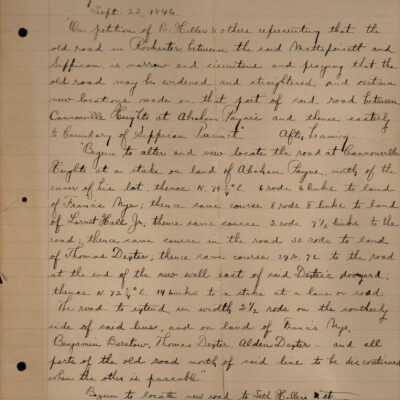 Sept. 22, 1846.
"On petition of B. Hiller & others representing that the
old road in Rochester between the said Mattapoisett and
Sippican is narrow and circuitous and praying that the
old road may be widened and straightened and certain
new locations made on that part of said road between
Cannonville Heights at Abraham Payne's and thence easterly
to boundary of Sippican Precinct" After hearing
"Began to alter and new locate the road at Cannonville
Heights at a stake on land of Abraham Payne, north of the
corner of his lot thence N. 74 ½° E. 6 rods 6 links to land
of Francis Nye; thence same course 8 rods 8 links to land
of Hall Jr. thence same course 2 rods 7½ links to the
road; thence same course in the road 32 rods to land
of Thomas Dexter, thence same course 29 R. 7 L. to the road
at the end of the new wall east of said Dexter's dooryard;
thence N. 72 ½° E. 14 links to a stake at a lane or road
The road to extend in width 2½ rods on the southerly
side of said lines, and on land of Francis Nye,
Benjamin Barstow, Thomas Dexter Alden Dexter and all
parts of the old road north of said line to be discontinued
when the other is passable"
Began to locate new road to Seth Hiller's